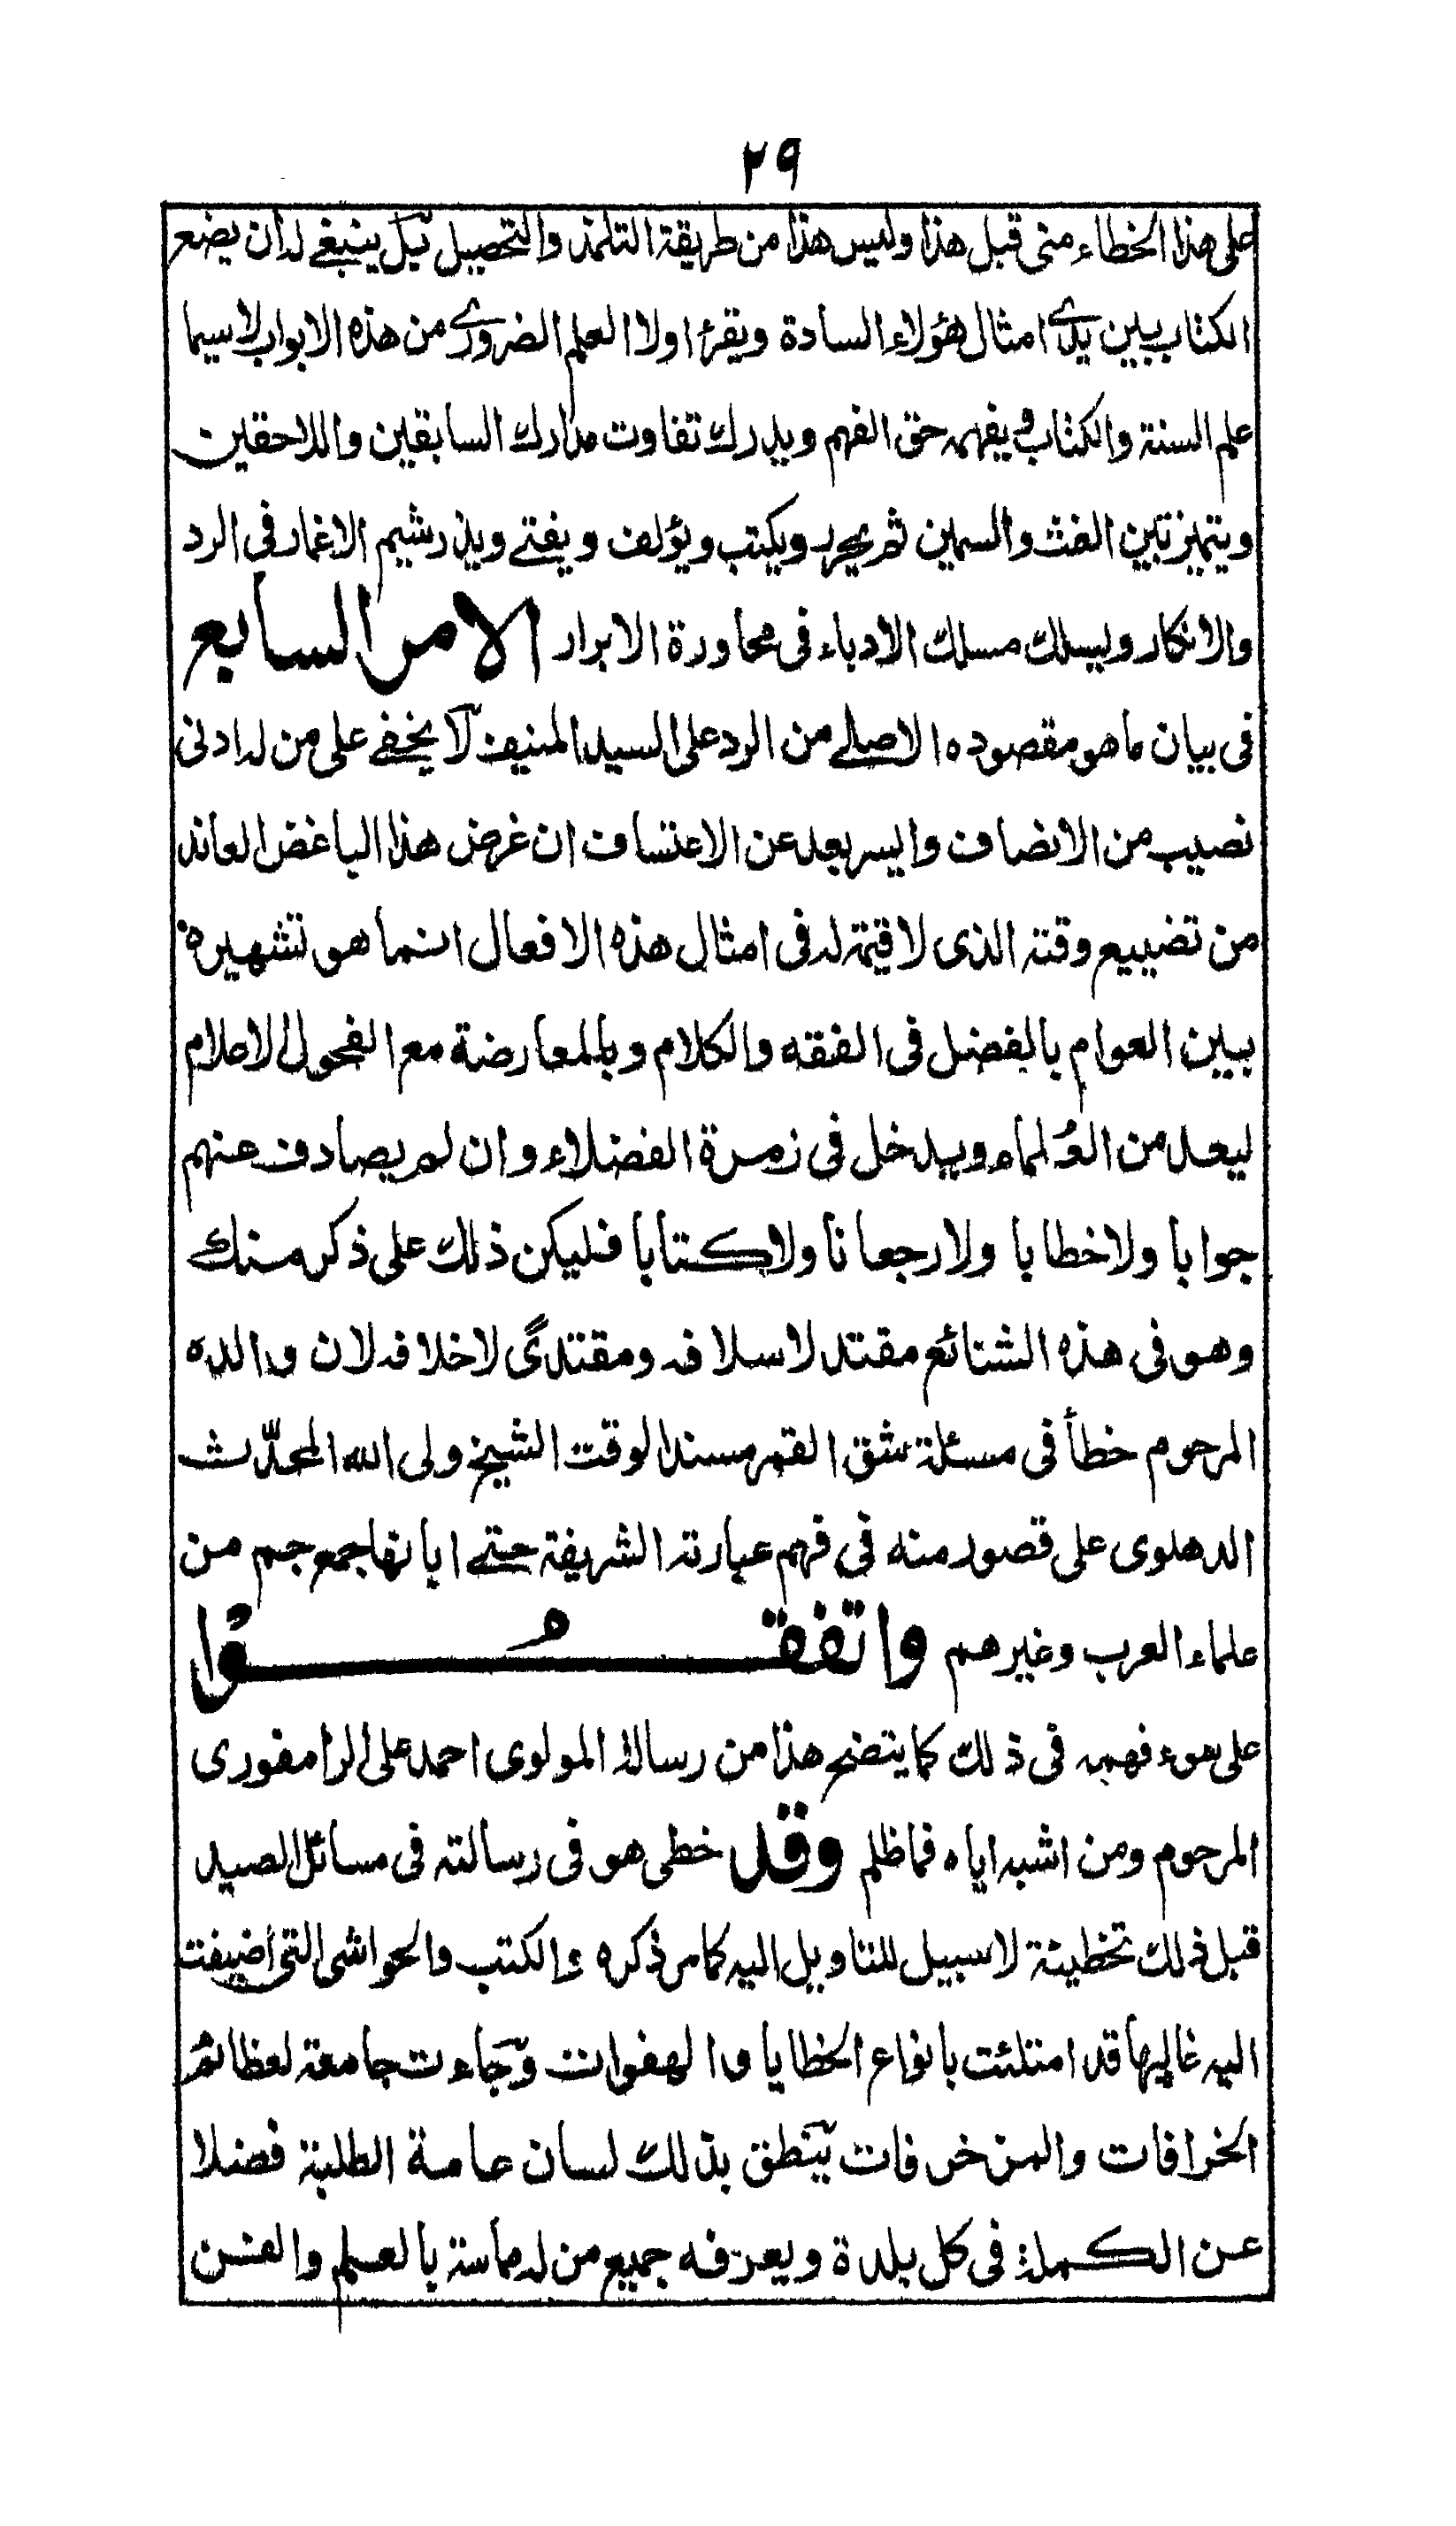 ٢٩
على هذا الخطاء منى قبل هذا وليس هذا من طريقة التلمذ والتحصيل بل ينبغي له ان يضع
الكتاب بين يدي امثال هؤلاء السادة ويقرأ اولا العلم الضروري من هذه الابواب لا سيما
علم السنة والكتاب ويفهمه حق الفهم ويدرك تفاوت مدارك السابقين واللاحقين
ويتميز بين الغث والسمين ثم يحرر ويكتب ويؤلف ويفتي ويذر شيم الاغمار فى الرد
والانكار وليسلك مسلك الادباء فى محاورة الابرار الامر السابع
فى بيان ما هو مقصوده الاصلي من الرد على السيد المنيف لا يخفي على من له ادنى
نصيب من الانصاف وايسر بعد عن الاعتساف ان غرض هذا الباغض العاند
من تضييع وقته الذى لا قيمة له فى امثال هذه الافعال انما هو تشهيره
بين العوام بالفضل فى الفقه والكلام وبالمعارضة مع الفحول الاعلام
ليعد من العُلماء ويدخل فى زمرة الفضلاء وان لم يصادف عنهم
جوابا ولا خطابا ولا رجعانا ولا كتابا فليكن ذلك على ذكر منك
وهو فى هذه الشنائع مقتد لاسلافه ومقتدًى لاخلافه لان والده
المرحوم خطأ فى مسئلة شق القمر مسند الوقت الشيخ ولى الله المحدّث
الدهلوى على قصور منه فى فهم عبارته الشريفة حتى ابانها جمع جم من
علماء العرب وغيرهم واتفقُوا
على سوء فهمه فى ذلك كما يتضح هذا من رسالة المولوى احمد على الرامفورى
المرحوم ومن اشبه اباه فما ظلم وقد خطى هو فى رسالته فى مسائل الصيد
قبل ذلك تخطيئة لا سبيل للتاويل اليه كما مر ذكره والكتب والحواشى التى أضيفت
اليه غالبها قد امتلئت بانواع الخطايا والهفوات وجاءت جامعة لعظائم
الخرافات والمزخرفات ينطق بذلك لسان عامة الطلبة فضلا
عن الكملة فى كل بلدة ويعرفه جميع من له ماسة بالعلم والفن